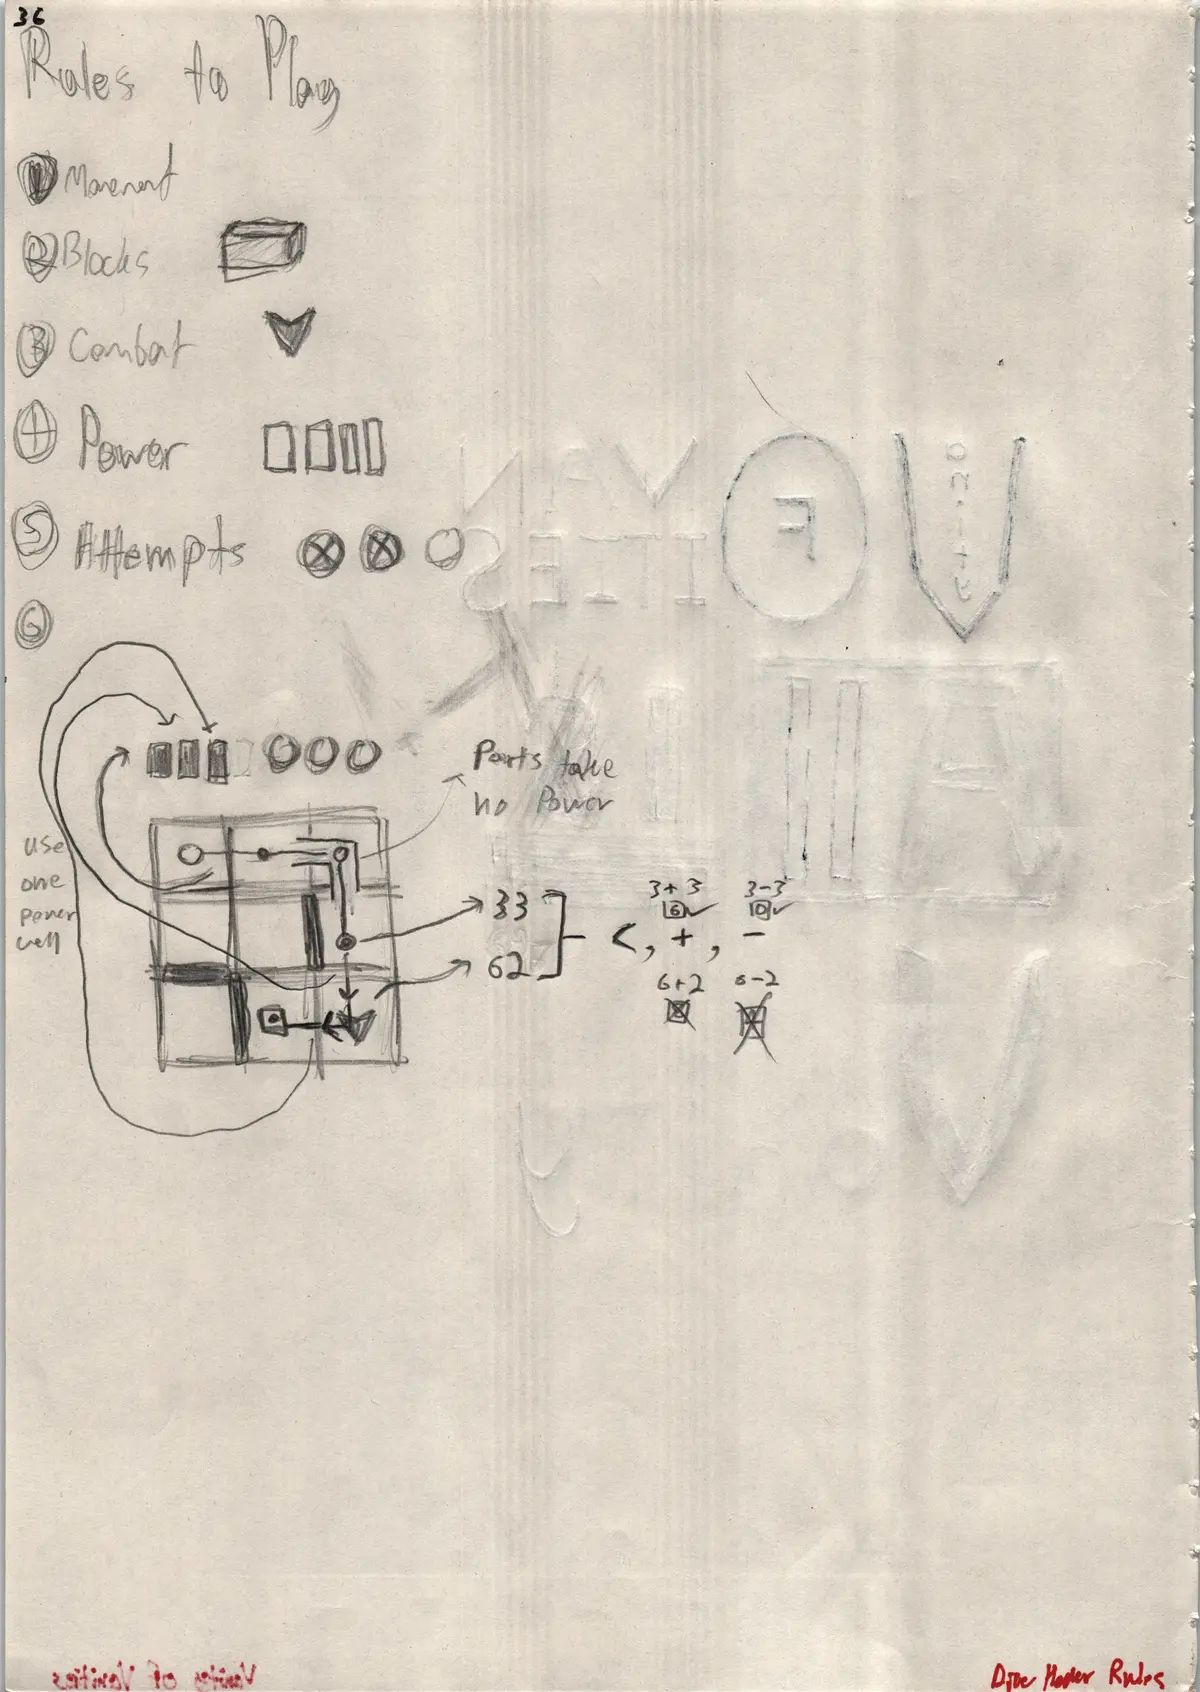 36
Rules to Play
1 Movement
2 Blocks
3 Combat
4 Power
5 Attempts
6
Parts take
no Power
use
one
power
cell
33
62
< , + , -
3+3
6
3-3
0
6+2
6-2
Vanity of Vanities
Rules